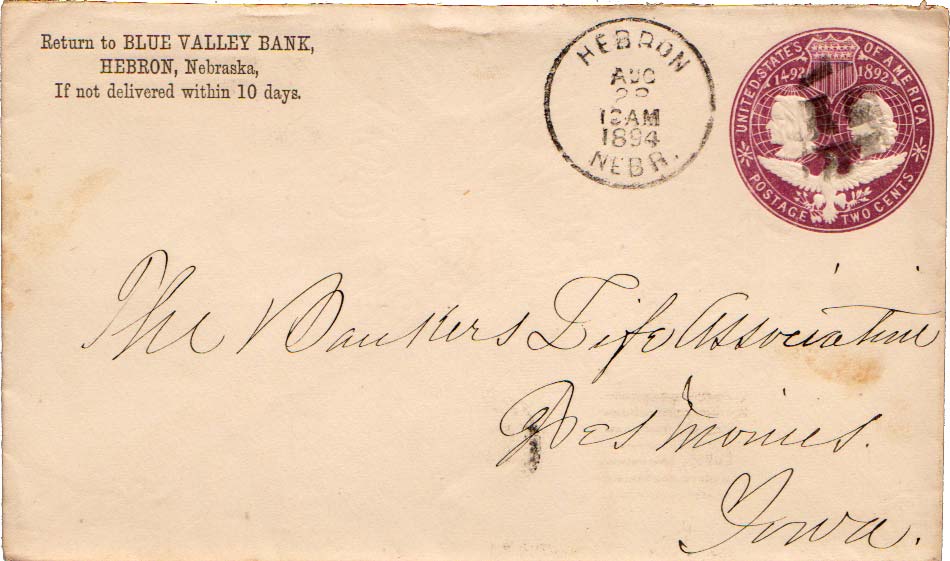 Return to BLUE VALLEY BANK,
HEBRON, Nebraska,
If not delivered within 10 days.
HEBRON
AUG
1894
NEBR.
UNITED STATES OF AMERICA
1492 1892
POSTAGE TWO CENTS
The Bankers Life Association
Des Moines.
Iowa.